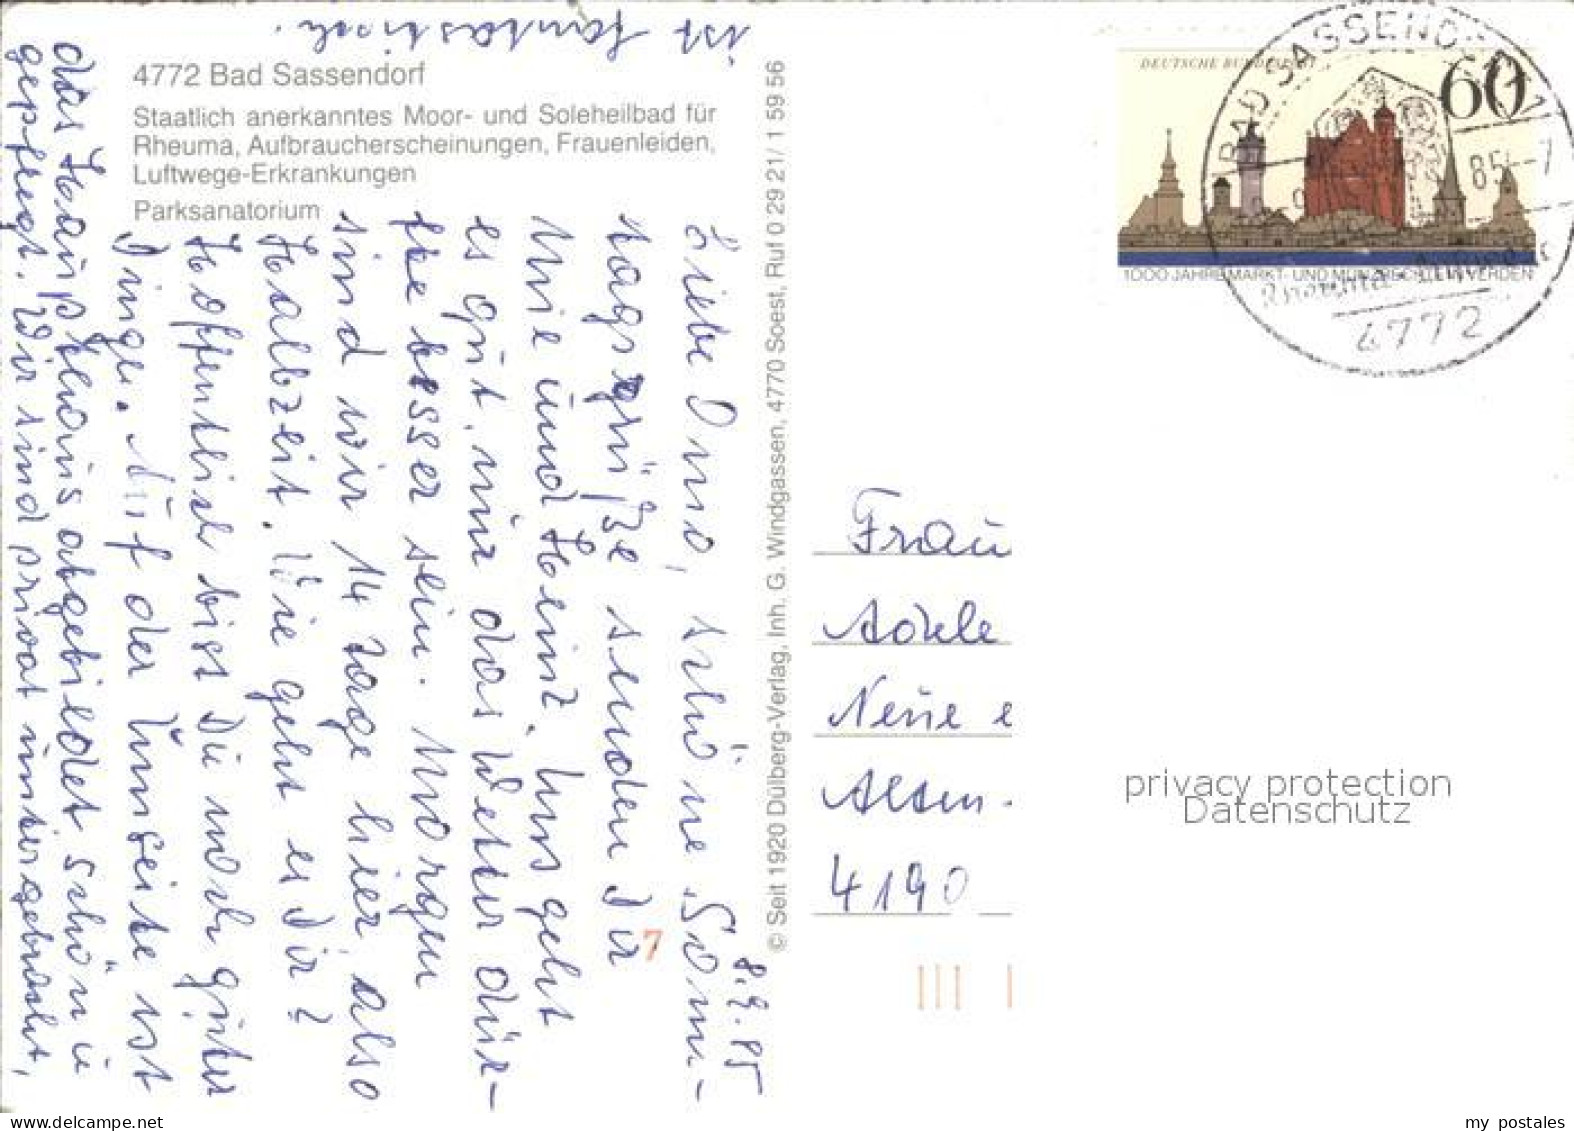 4772 Bad Sassendorf
Staatlich anerkanntes Moor- und Soleheilbad für
Rheuma, Aufbraucherscheinungen, Frauenleiden,
Luftwege-Erkrankungen
Parksanatorium
8.9.85
Liebe Omo, schöne Sonn-
tagsgrüße senden Dir
und Heinz. Uns geht
es gut, nur das Wetter dürf-
te besser sein. Morgen
sind wir 14 Tage hier, also
Halbzeit. Wie geht es Dir?
Hoffentlich bist Du noch guter
Dinge. Auf der Umseite ist
das Haus abgebildet schön u
gepflegt. Wir sind privat untergebracht,
ist fantastisch.
© Seit 1920 Dülberg-Verlag, Inh. G. Windgassen, 4770 Soest, Ruf 0 29 21/ 1 59 56
7
DEUTSCHE BUNDESPOST
60
1000 JAHRE MARKT- UND MÜNZRECHT IN VERDEN
BAD SASSENDORF 1
85-7
4772
Frau
Adele
Neue
Alten
4190
privacy protection
Datenschutz
my postales